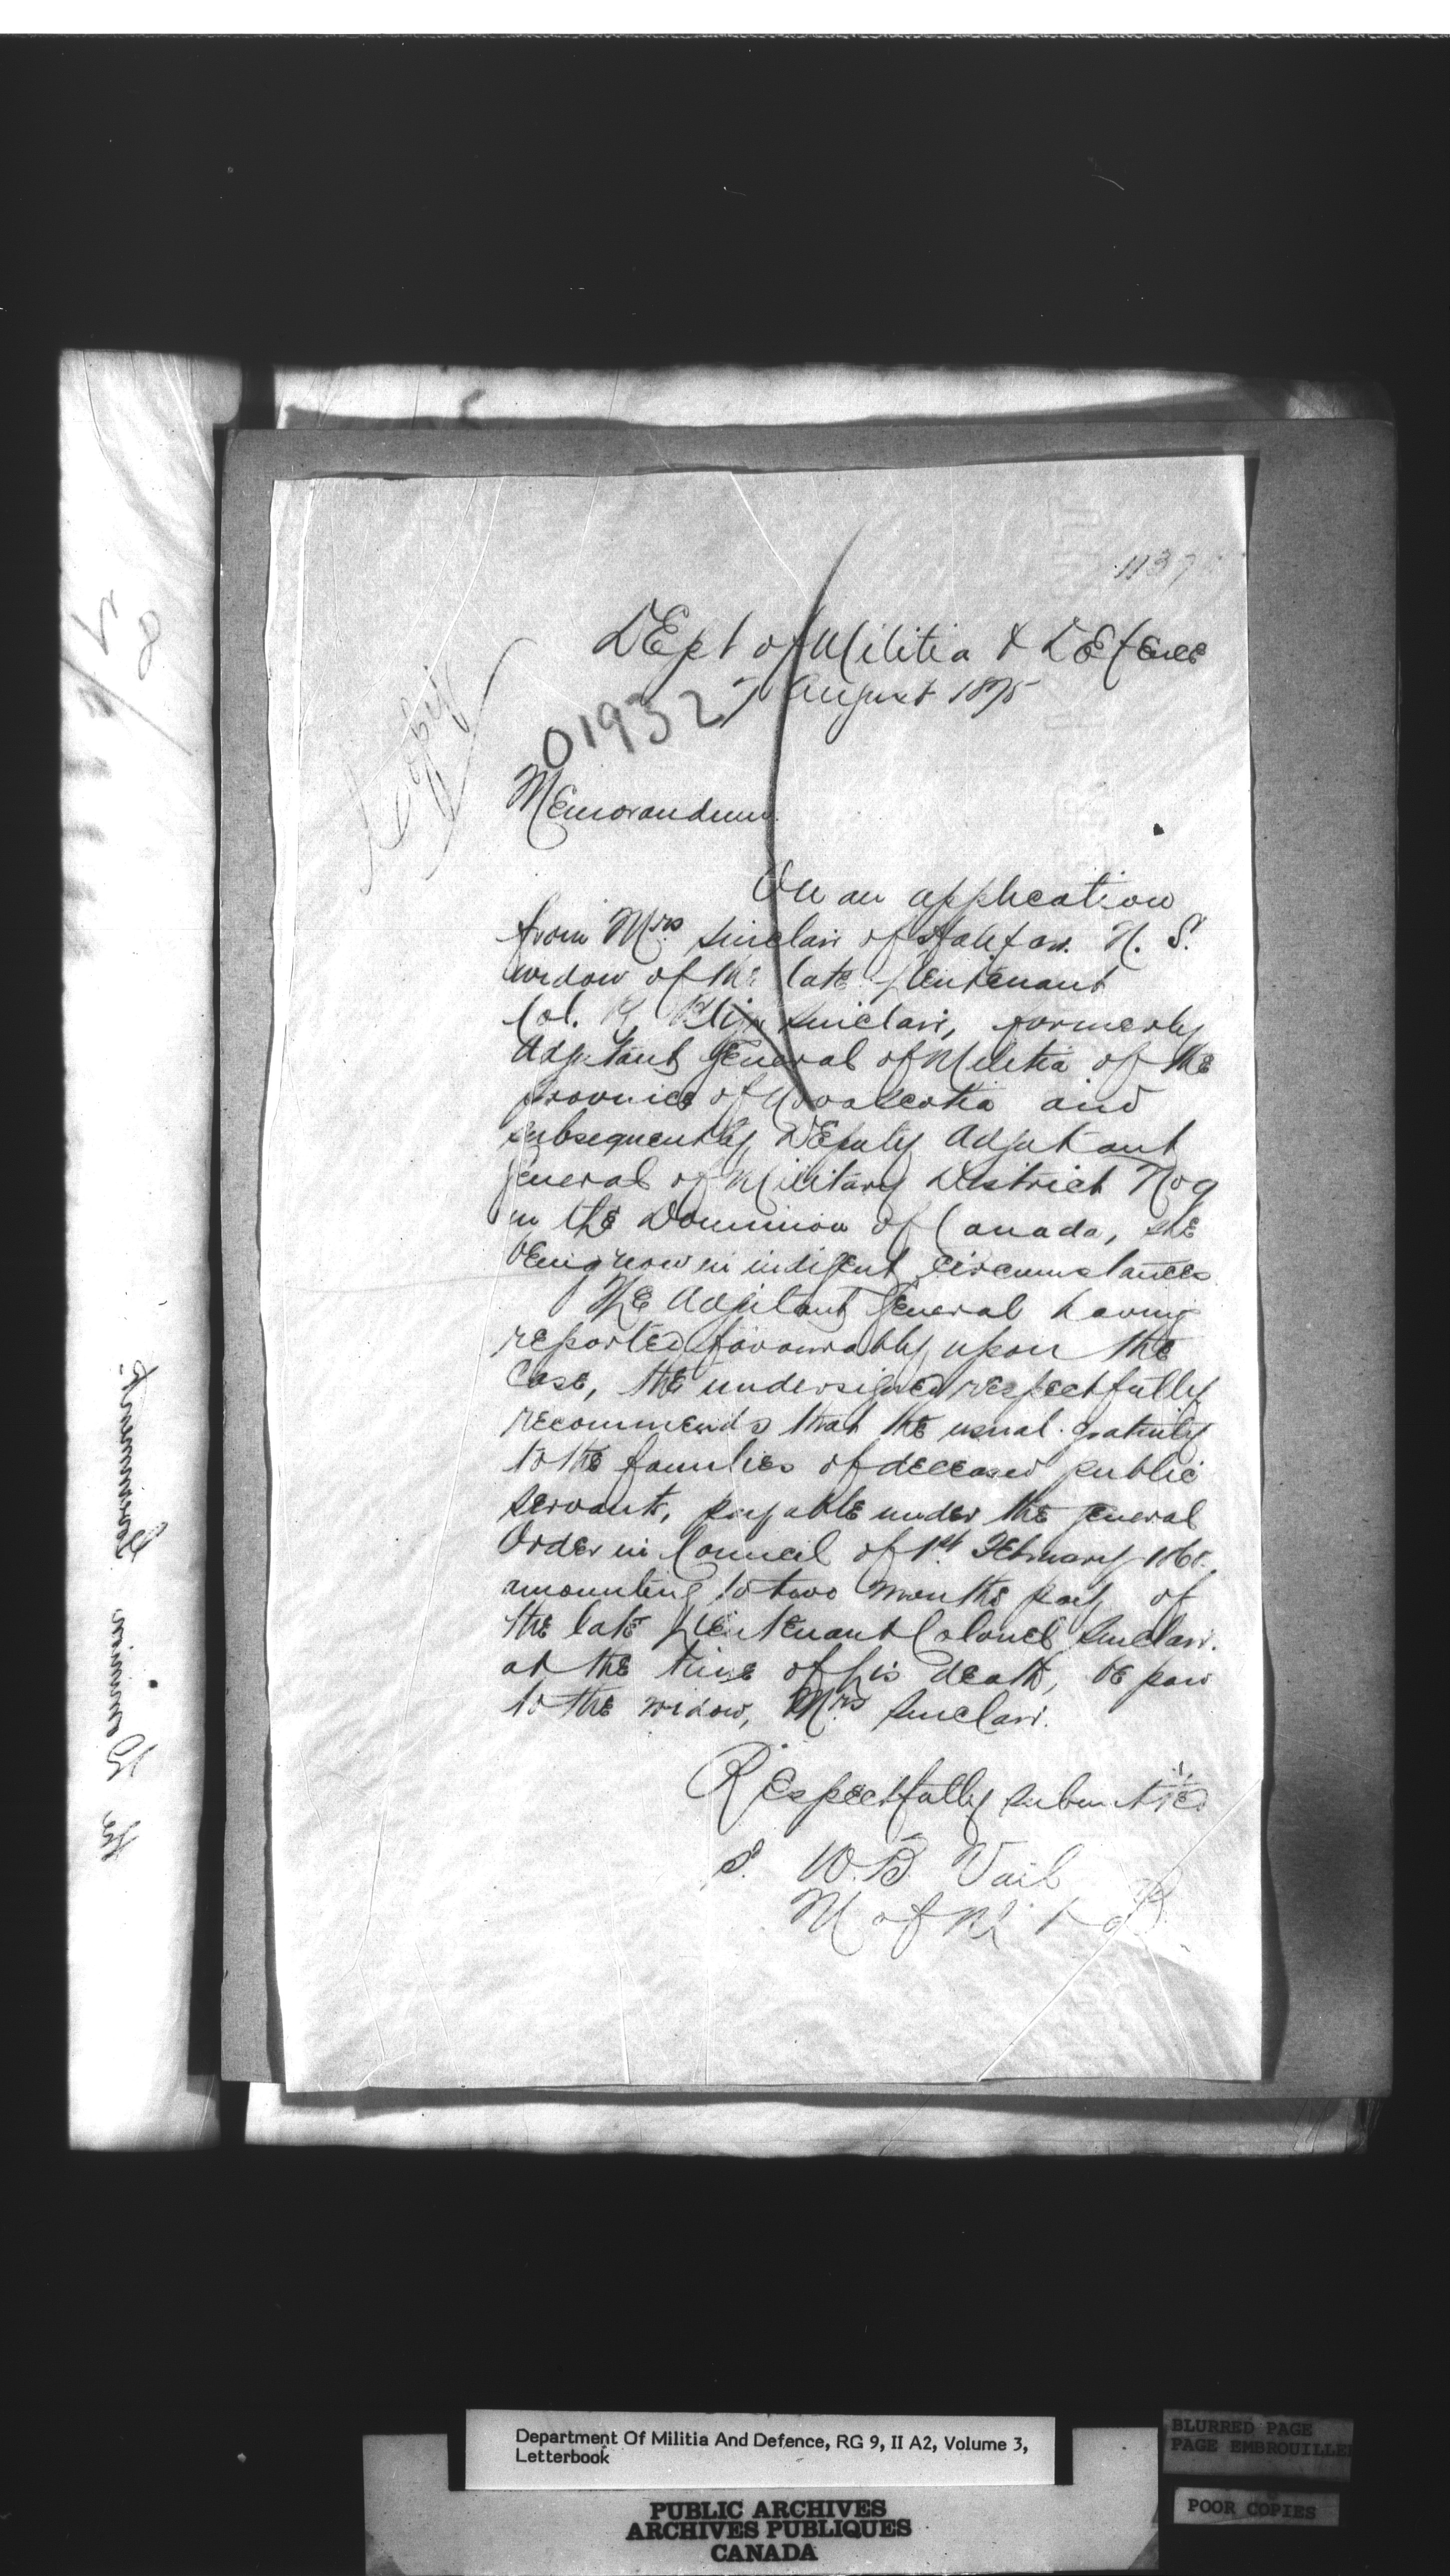 1137
Dept of Militia & Defence
7 August 1875
01932
Copy
Memorandum.
On an application
from Mrs. Sinclair of Halifax. N. S.
widow of the late Lieutenant
Col. R Sinclair, formerly
Adjutant General of Militia of the
province of Nova Scotia and
subsequently Deputy Adjutant
General of Military District No 9
in the Dominion of Canada, she
being now in indigent circumstances
The Adjutant General having
reported favourably upon the
Case, the undersigned respectfully
recommends that the usual gratuity
to the families of deceased public
servants, payable under the General
Order in Council of 1st February
amounting to two months pay of
the late Lieutenant Colonel Sinclair.
at the time of his death, be paid
to the widow, Mrs Sinclair.
Respectfully submitted
S. W. B. Vail
M of M & D
the Dominion Government
Department Of Militia And Defence, RG 9, II A2, Volume 3,
Letterbook
BLURRED PAGE
PAGE EMBROUILLE
POOR COPIES
PUBLIC ARCHIVES
ARCHIVES PUBLIQUES
CANADA